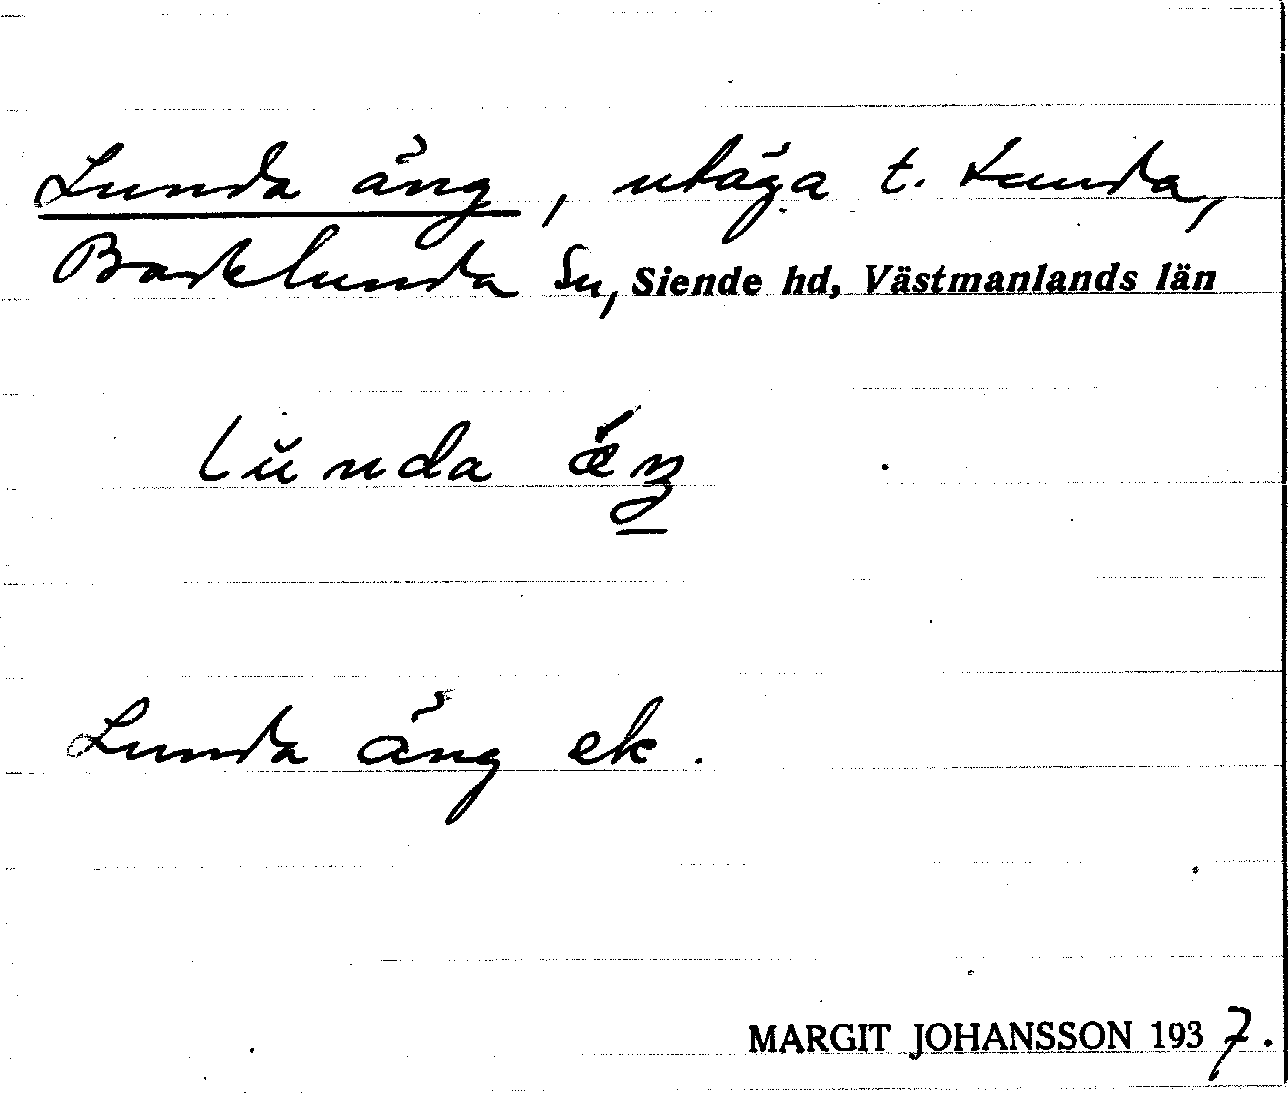 Lunda äng, utäga t. Lunda,
Badelunda sn, Siende hd, Västmanlands län
lŭnda
Lunda äng ek.
MARGIT JOHANSSON 1937.